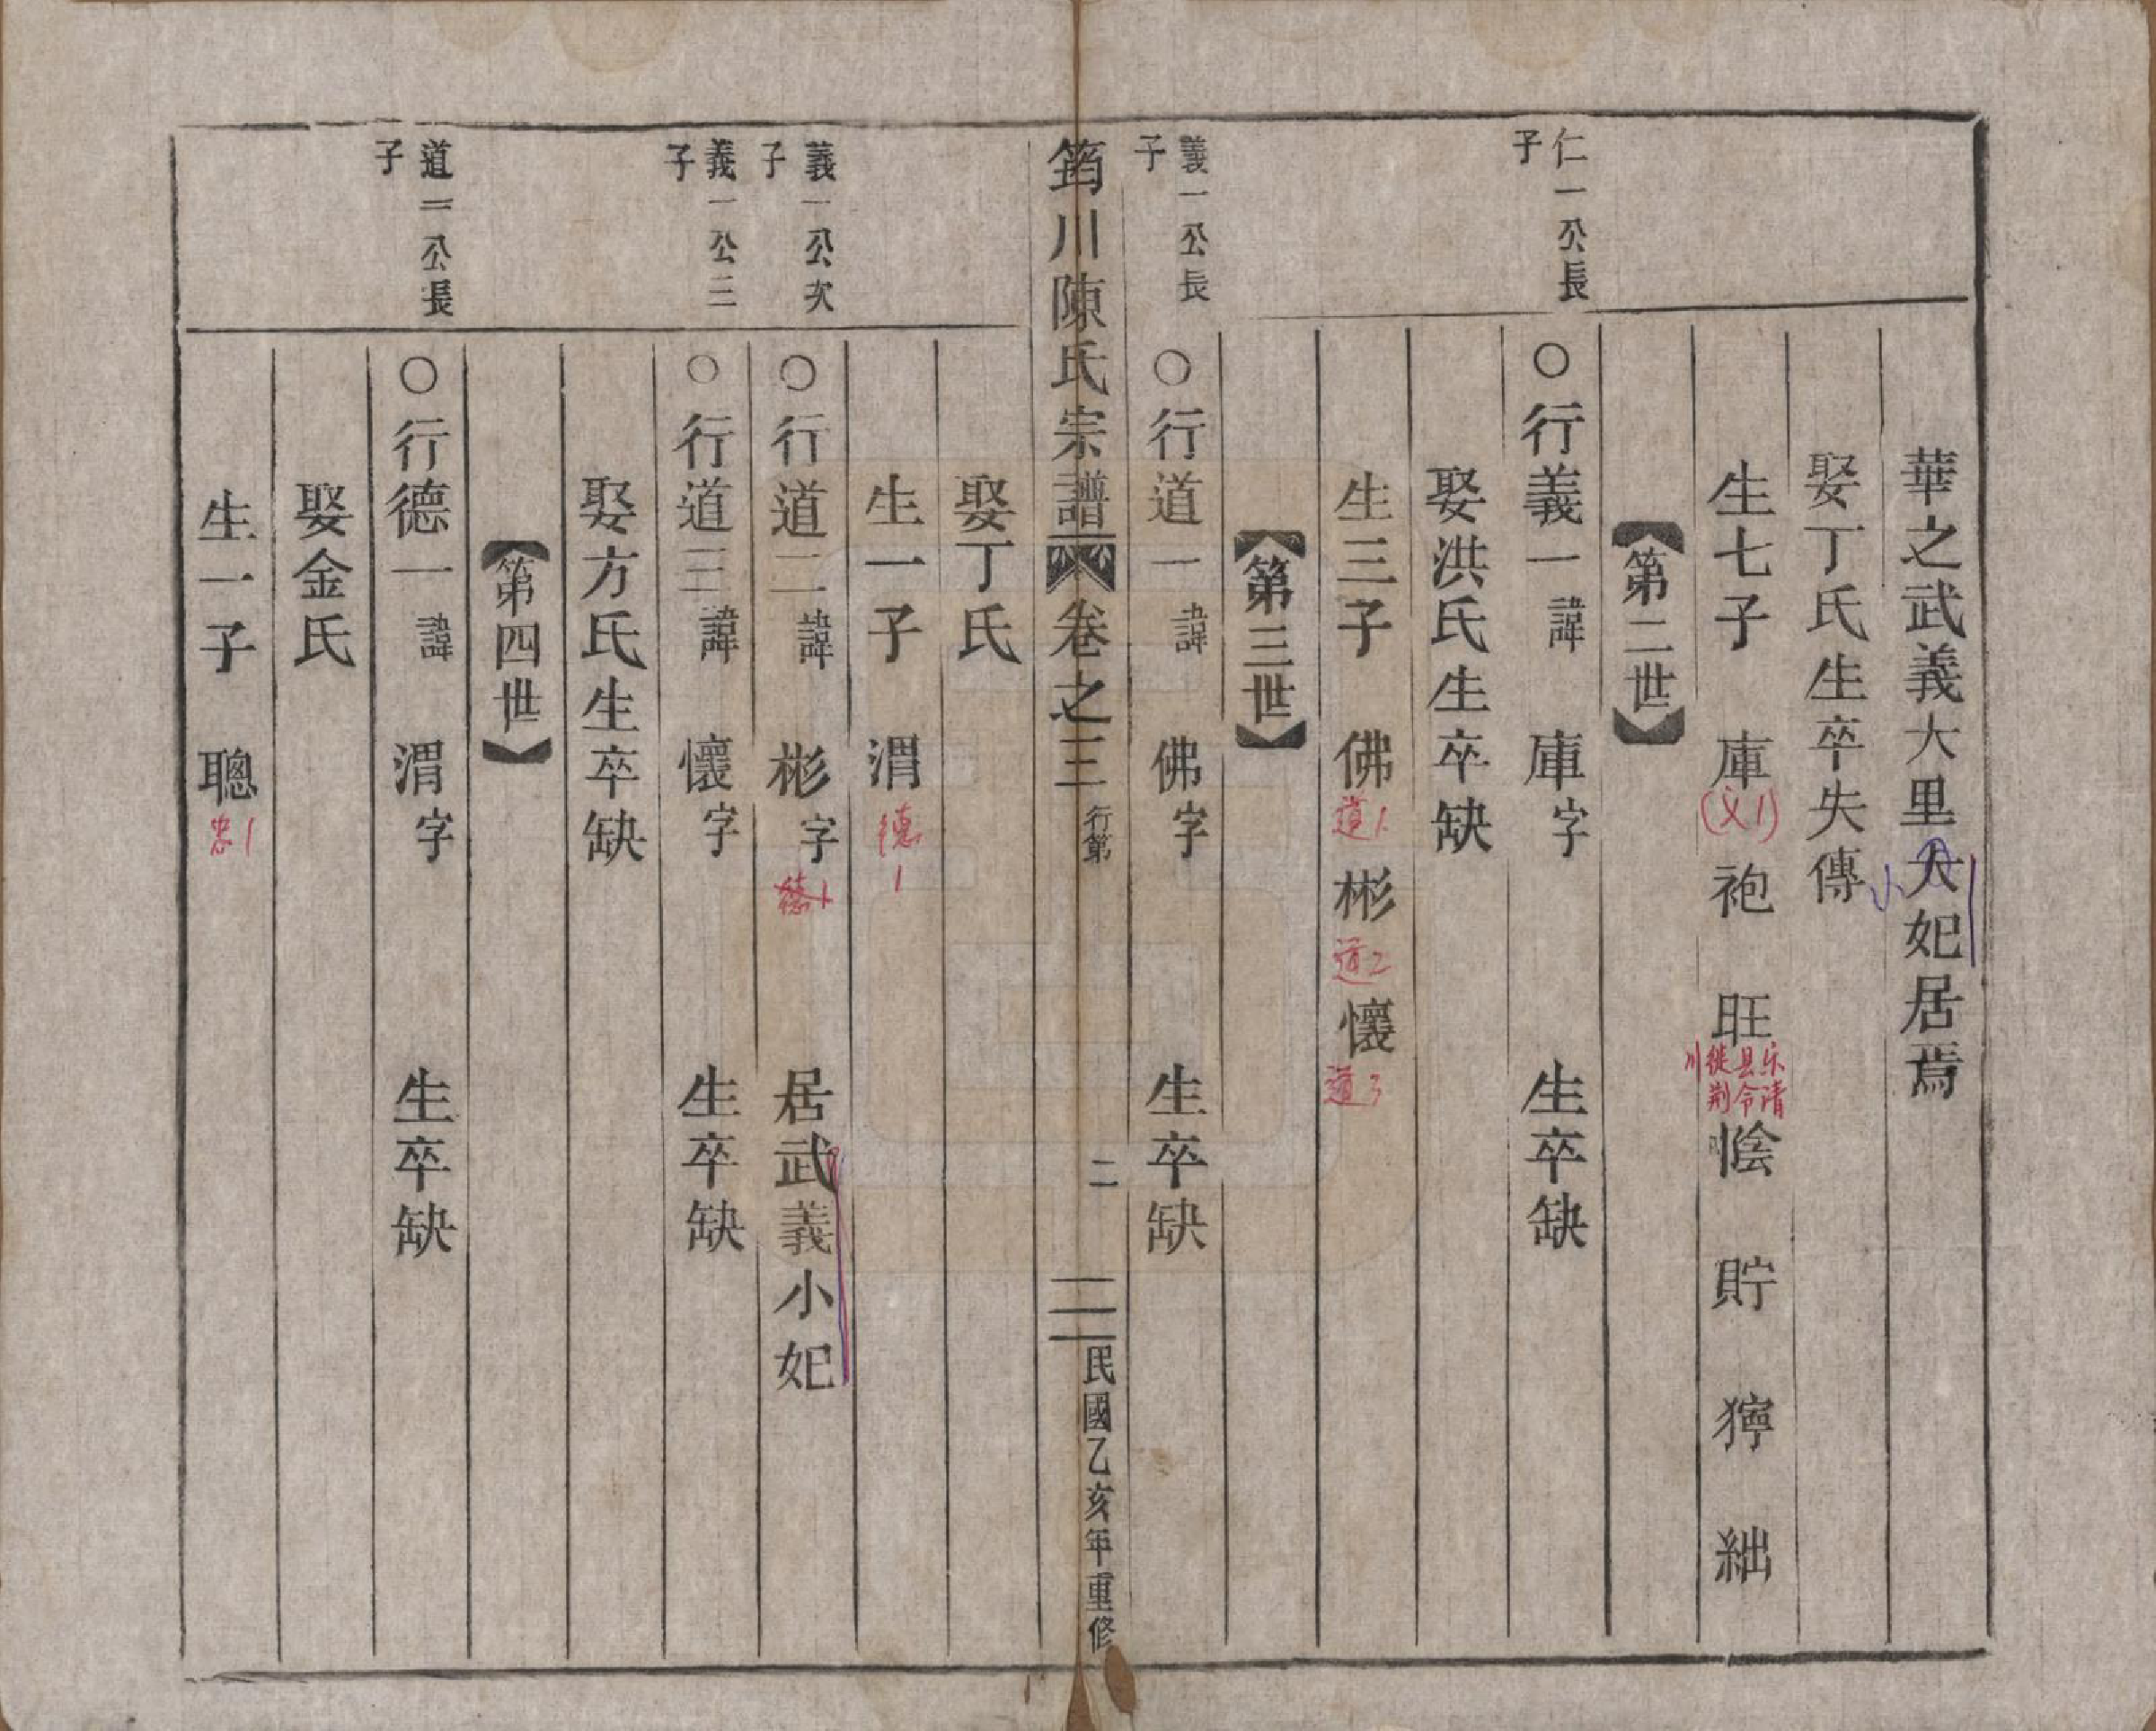 華之武義大里大妃居焉
小
娶丁氏生卒失傳
生七子 庫 袍 旺 惍 貯 獰 絀
(义1)
乐清
县令
徙荆
川
【第二世】
仁一公長
子
○行義一 諱 庫字 生卒缺
娶洪氏生卒缺
生三子 佛 彬 懷
道1
道2
道3
【第三世】
義一公長
子
○行道一 諱 佛字 生卒缺
筠川陳氏宗譜 卷之三 行第 二 民國乙亥年重修
娶丁氏
生一子 渭
德1
義一公次
子
○行道二 諱 彬字 居武義小妃
德1
義一公三
子
○行道三 諱 懷字 生卒缺
娶方氏生卒缺
【第四世】
道一公長
子
○行德一 諱 渭字 生卒缺
娶金氏
生一子 聰
忠1